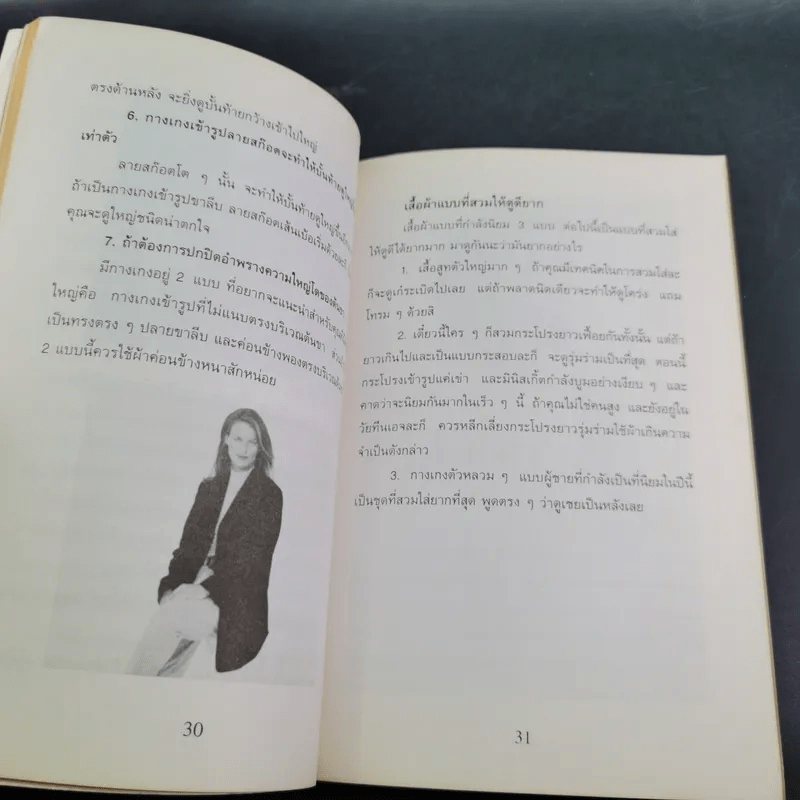 ตรงด้านหลัง จะยิ่งดูบั้นท้ายกว้างเข้าไปใหญ่
6. กางเกงเข้ารูปลายสก๊อตจะทำให้บั้นท้ายดูใหญ่
เท่าตัว
ลายสก๊อตโต ๆ นั้น จะทำให้บั้นท้ายดูใหญ่ขึ้น
ถ้าเป็นกางเกงเข้ารูปขาลีบ ลายสก๊อตเส้นเบ้อเริ่มด้วยละก็
คุณจะดูใหญ่ชนิดน่าตกใจ
7. ถ้าต้องการปกปิดอำพรางความใหญ่โตของต้นขา
มีกางเกงอยู่ 2 แบบ ที่อยากจะแนะนำสำหรับคุณ
ใหญ่คือ กางเกงเข้ารูปที่ไม่แนบตรงบริเวณต้นขา
เป็นทรงตรง ๆ ปลายขาลีบ และค่อนข้างพองตรงบริเวณ
2 แบบนี้ควรใช้ผ้าค่อนข้างหนาสักหน่อย
30
เสื้อผ้าแบบที่สวมให้ดูดียาก
เสื้อผ้าแบบที่กำลังนิยม 3 แบบ ต่อไปนี้เป็นแบบที่สวมใส่
ให้ดูดีได้ยากมาก มาดูกันนะว่ามันยากอย่างไร
1. เสื้อสูทตัวใหญ่มาก ๆ ถ้าคุณมีเทคนิคในการสวมใส่ละ
ก็จะดูเก๋ระเบิดไปเลย แต่ถ้าพลาดนิดเดียวจะทำให้ดูโคร่ง แถม
โทรม ๆ ด้วยสิ
2. เดี๋ยวนี้ใคร ๆ ก็สวมกระโปรงยาวเฟื้อยกันทั้งนั้น แต่ถ้า
ยาวเกินไปและเป็นแบบกระสอบละก็ จะดูรุ่มร่ามเป็นที่สุด ตอนนี้
กระโปรงเข้ารูปแค่เข่า และมินิสเกิ๊ตกำลังบูมอย่างเงียบ ๆ และ
คาดว่าจะนิยมกันมากในเร็ว ๆ นี้ ถ้าคุณไม่ใช่คนสูง และยังอยู่ใน
วัยทีนเอจละก็ ควรหลีกเลี่ยงกระโปรงยาวรุ่มร่ามใช้ผ้าเกินความ
จำเป็นดังกล่าว
3. กางเกงตัวหลวม ๆ แบบผู้ชายที่กำลังเป็นที่นิยมในปีนี้
เป็นชุดที่สวมใส่ยากที่สุด พูดตรง ๆ ว่าดูเชยเป็นหลังเลย
31